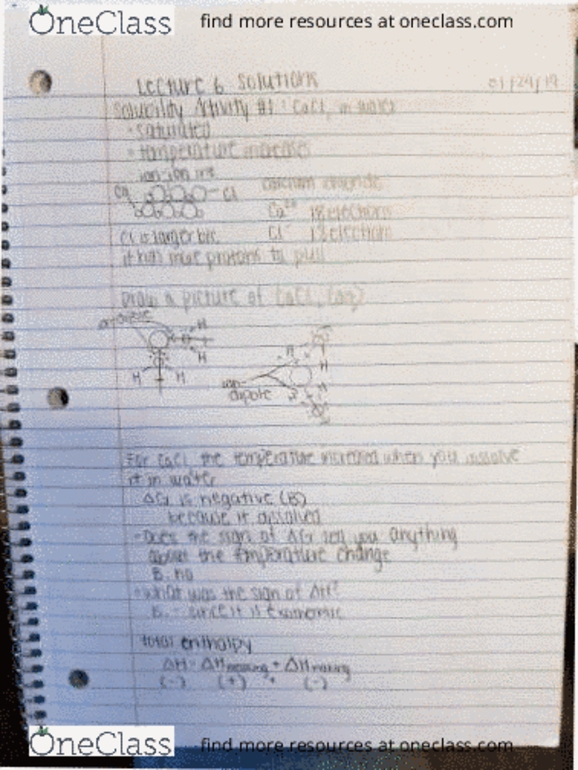 OneClass find more resources at oneclass.com
Lecture 6 Solutions 01/24/19
Solubility Activity #1: CaCl₂ in water
- saturated
- temperature increases
ion-ion int.
Ca Cl calcium chloride
Ca²⁺ 18 electrons
Cl⁻ 18 electrons
Cl is larger b/c
it has more protons to pull
Draw a picture of CaCl₂ (aq)
H
H
H H
H
H
ion
dipole
For CaCl₂ the temperature increased when you dissolve
it in water
ΔG is negative (B)
because it dissolved
- Does the sign of ΔG tell you anything
about the temperature change
B. no
- what was the sign of ΔH?
B. - since it is exothermic
total enthalpy
ΔH = ΔH breaking + ΔH making
(-) (+) + (-)
OneClass find more resources at oneclass.com